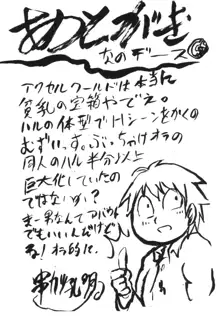 あとがき
なのデース
アクセルワールドは本当に
貧乳の宝箱やでえ。
ハルの体型でHシーンをかくの
むずいっす。ぶっちゃけオラの
同人のハル半分以上
巨大化していたの
ではないかい?
まー男なんてアバウト
でもいいんだけど
な!オラ的に。